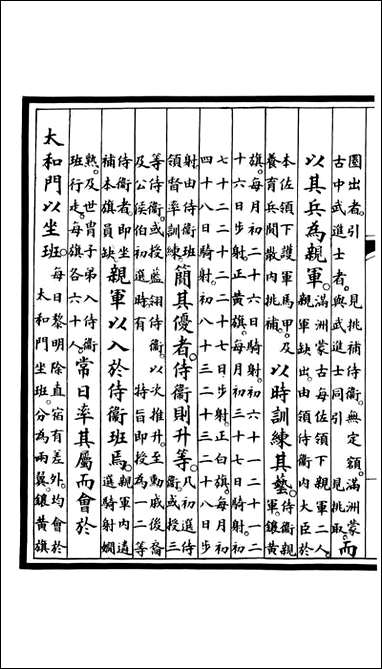 園出者。引　見挑補侍衛。無定額。滿洲蒙
古中武進士者。與武進士同引　見挑取。
而
以其兵為親軍。
滿洲蒙古每佐領下親軍二人。
親軍缺出。由領侍衛內大臣於
本佐領下護軍馬甲及
養育兵閒散內挑補。
以時訓練其藝。
侍衛親
軍。鑲黃
旗。每月初二十六日騎射。初六十一二十一二
十六日步射。正黃旗。每月初三十七日騎射。初
七十二二十二二十七日步射。正白旗。每月初
四十八日騎射。初八十三二十三二十八日步
射。由侍衛班
領督率訓練。
簡其優者。侍衛則升等。
凡初選侍
衛。或授三
等侍衛。或授藍翎侍衛。以次推升。至勳戚後裔
及公侯伯初選時。有　特旨即授為一二等
侍衛者。即坐
補本旗員缺。
親軍以入於侍衛班焉。
親軍內遴
選騎射嫺
熟。及世胄子弟入侍衛
班行走。每旗各六十人。
常日率其屬而會於
太和門以坐班。
每日黎明除直宿有差外。均會於
太和門坐班。分為兩翼。鑲黃旗